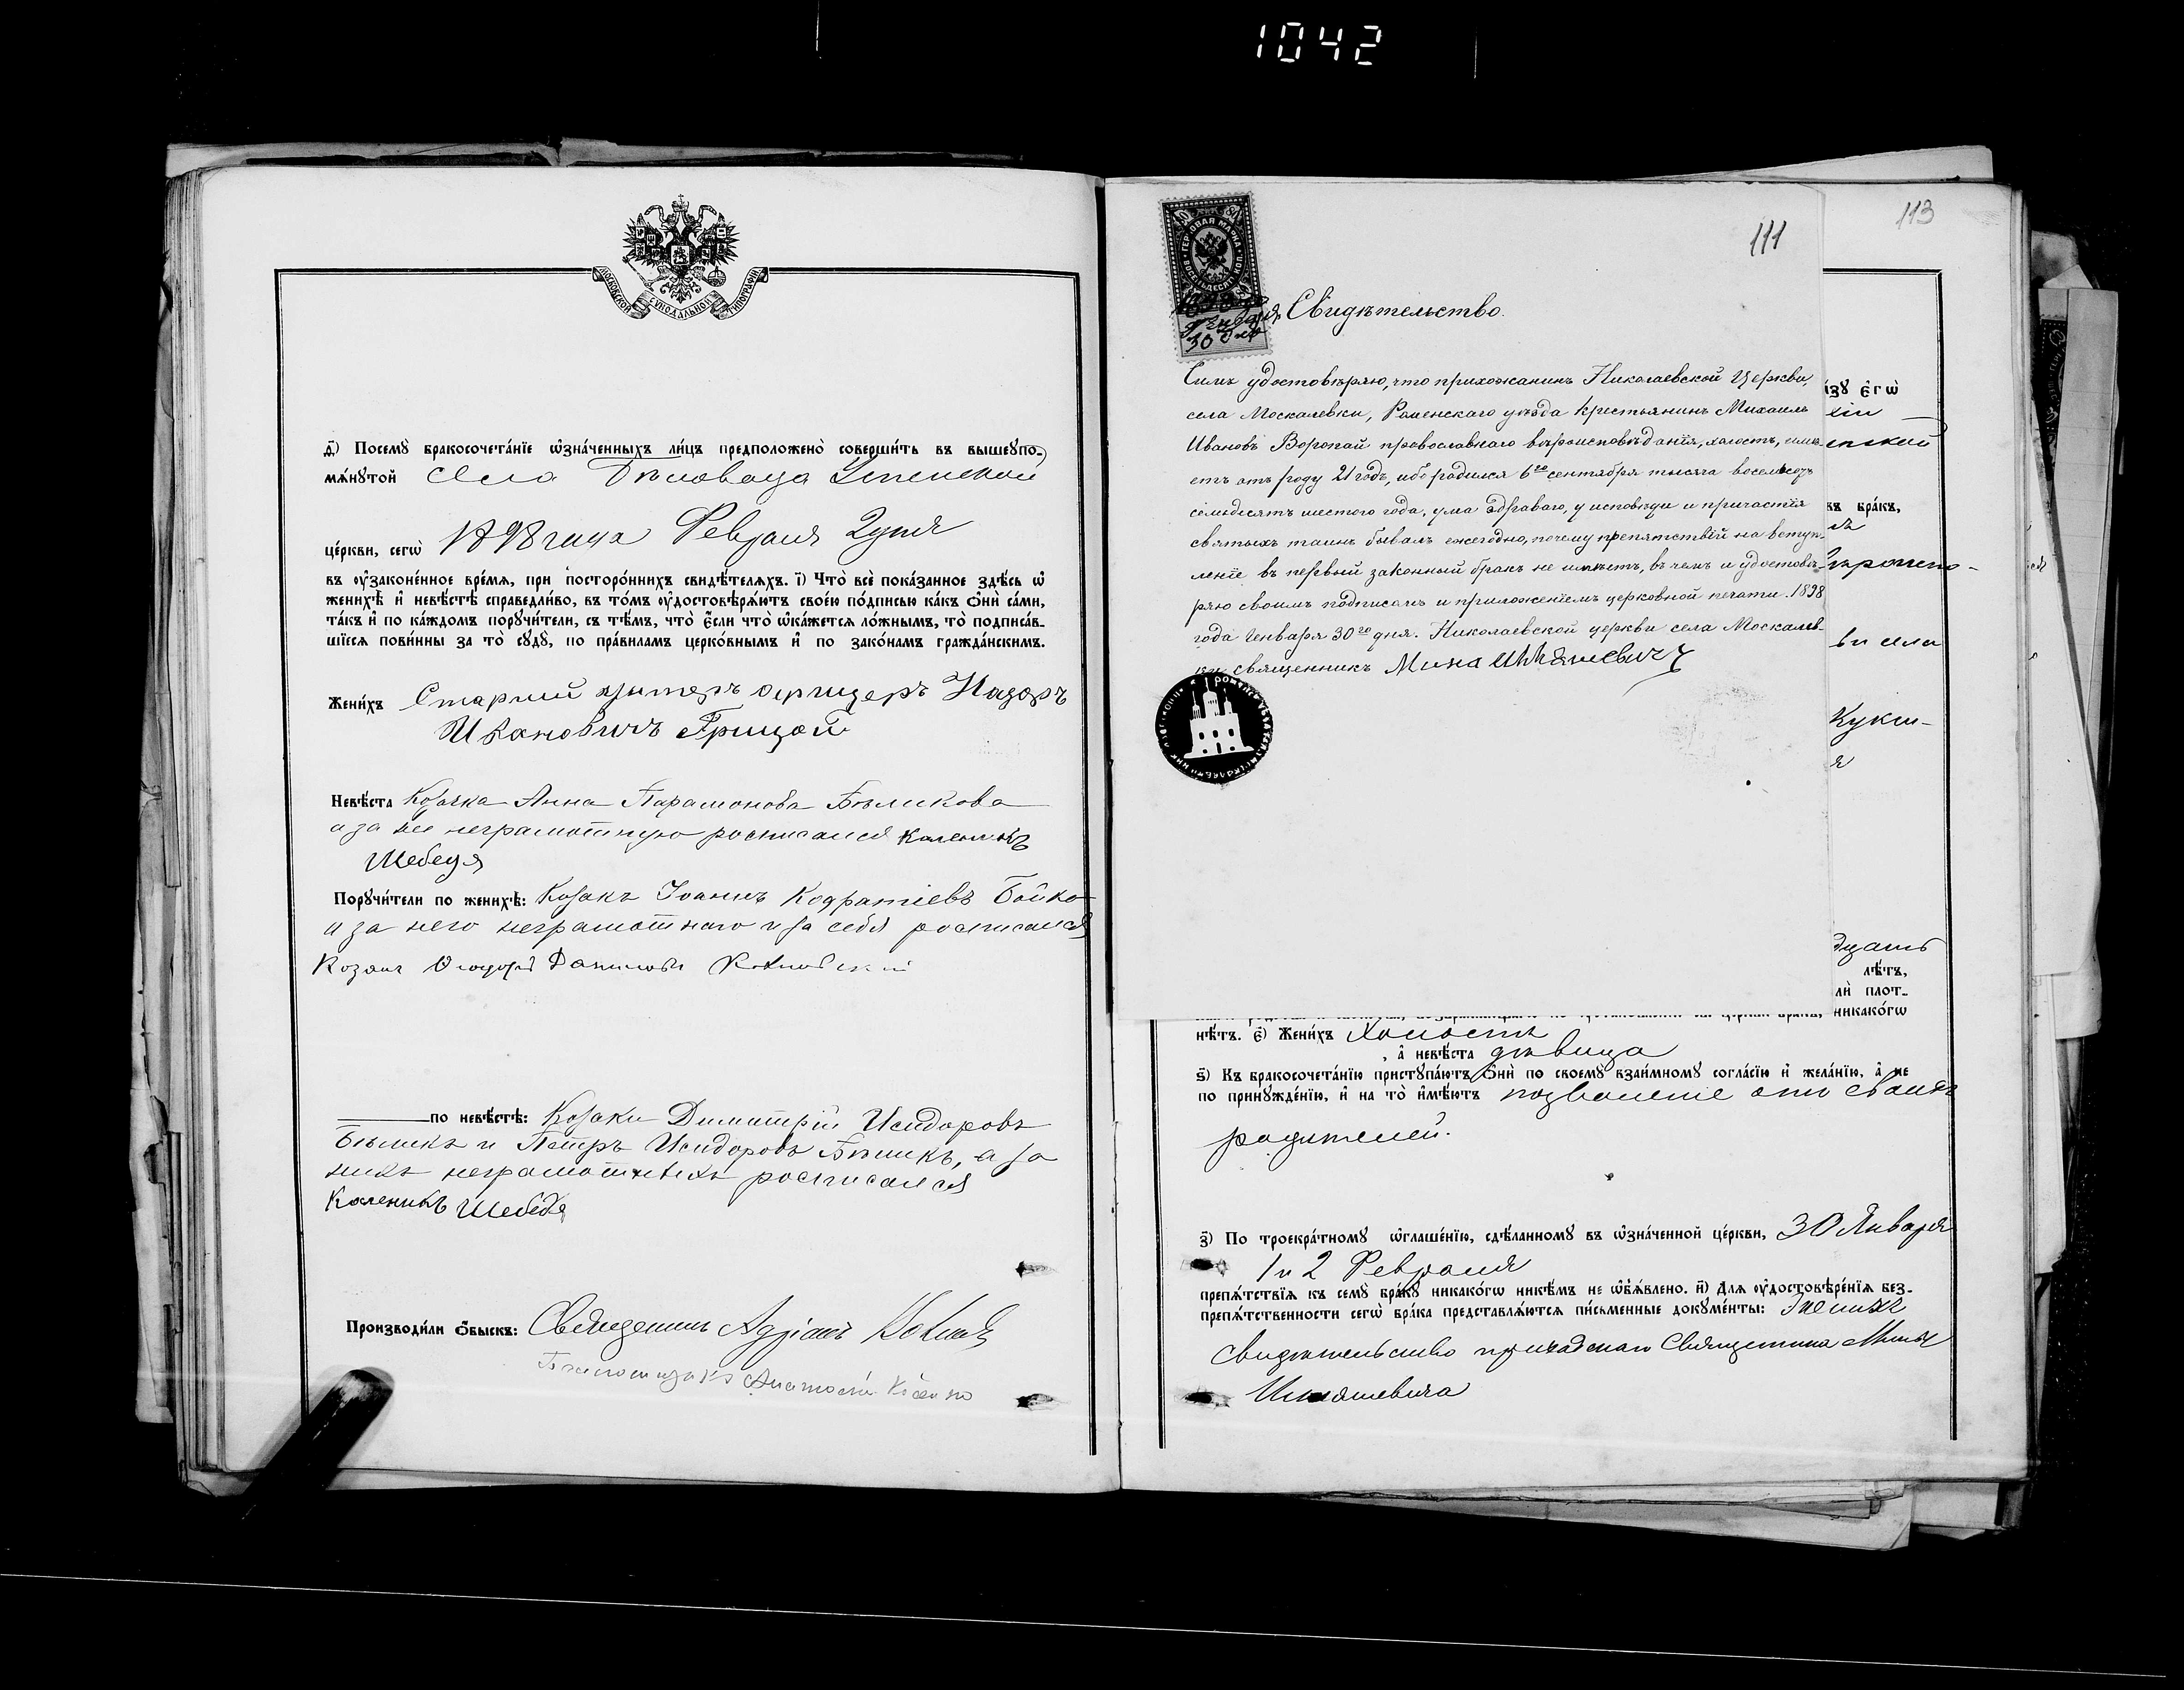 1042
МОСКОВСКОЙ СѴНОДАЛЬНОЙ ТИПОГРАФІИ
д҃) Посемꙋ̀ бракосочета́нїе ѡ҆зна́ченныхъ ли́цъ предположено̀ соверши́ть въ вышеꙋпо-
мѧ́нꙋтой села Успенской
це́ркви, сегѡ̀ 1898 года Февраля 2 дня
въ ᲂу҆законе́нное вре́мѧ, при посторо́ннихъ свидѣ́телѧхъ. і҃) Что̀ всѐ пока́занное здѣ́сь ѡ҆
женихѣ̀ и҆ невѣ́стѣ справедли́во, въ то́мъ ᲂу҆достовѣрѧ́ютъ свое́ю по́дписью ка́къ ѻ҆нѝ са́ми,
та́къ и҆ по ка́ждомъ порꙋчи́тели, съ тѣ́мъ, что̀ є҆́сли что̀ ѡ҆ка́жетсѧ ло́жнымъ, то̀ подписа́в-
шїесѧ пови́нны за то̀ сꙋдꙋ̀, по пра́виламъ церко́внымъ и҆ по зако́намъ гражда́нскимъ.
Жени́хъ Старшій унтеръ офицеръ Назаръ
Ивановичъ Грицай
Невѣ́ста Козачка Анна Парамонова Бѣликова
а за нее неграмотную росписался Каленикъ
Шебедя
Порꙋчи́тели по женихѣ̀: Козакъ Іоаннъ Кодратіевъ Бойко
а за него неграмотнаго и за себя росписался
Козакъ Ѳеодоръ Даниловъ
по невѣ́стѣ: Козаки Димитрій Исидоровъ
Бѣликъ и Петръ Исидоровъ Бѣликъ, а за
нихъ неграмотныхъ росписался
Каленикъ Шебедя
Производи́ли ѻ҆́быскъ: Священникъ Адріанъ
111
113
ГЕРБОВАЯ МАРКА
ВОСЕМЬДЕСЯТЪ КОП.
80
Января
30 дня
Свидѣтельство.
Симъ удостовѣряю, что прихожанинъ Николаевской Церкви,
села Москалевки, Роменскаго уѣзда крестьянинъ Михаилъ
Ивановъ Воропай православнаго вѣроисповѣданія, холостъ, имѣ-
етъ отъ роду 21 годъ, ибо родился 6го сентября тысяча восемьсотъ
семьдесятъ шестого года, ума здраваго, у исповѣди и причастія
святыхъ таинъ бывалъ ежегодно, почему препятствій на вступ-
леніе въ первый законный бракъ не имѣетъ, въ чемъ и удостовѣ-
ряю своимъ подписомъ и приложеніемъ церковной печати. 1898
года Генваря 30го дня. Николаевской церкви села Москалев-
ки священникъ Мина Ильяшевичъ
і́зꙋ є҆гѡ̀
бра́къ,
ви села
Кукси-
дцать
лѣ́тъ,
плот-
никако́гѡ
нѣ́тъ. є҃) Жени́хъ Холостъ
, а҆ невѣ́ста дѣвица
ѕ҃) Къ бракосочета́нїю пристꙋпа́ютъ ѻ҆нѝ по своемꙋ̀ взаи́мномꙋ согла́сїю и҆ жела́нїю, а҆ не
по принꙋжде́нїю, и҆ на то̀ и҆мѣ́ютъ позволеніе отъ своихъ
родителей.
з҃) По троекра́тномꙋ ѡ҆глаше́нїю, сдѣ́ланномꙋ въ ѡ҆зна́ченной це́ркви, 30 Января
1 и 2 Февраля
препѧ́тствїѧ къ семꙋ̀ бра́кꙋ никако́гѡ никѣ́мъ не ѡ҆б̾ѧ́влено. и҃) Длѧ ᲂу҆достовѣре́нїѧ без-
препѧ́тственности сегѡ̀ бра́ка представлѧ́ютсѧ пи́сьменные докꙋме́нты:
Свидѣтельство приходскаго Священника Мины
Ильяшевича